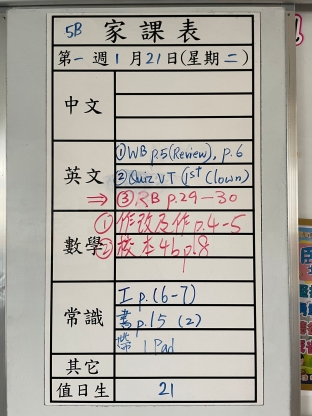 5B 家課表
第一週1月21日(星期二)
中文
英文
① WB p.5 (Review), p.6
② Quiz VT (1st Clown)
⇒ ③ RB p.29-30
數學
① 作改及作 p.4-5
② 校本4b p.8
常識
工 p.(6-7)
書 p.15 (2)
帶 iPad
其它
值日生 21